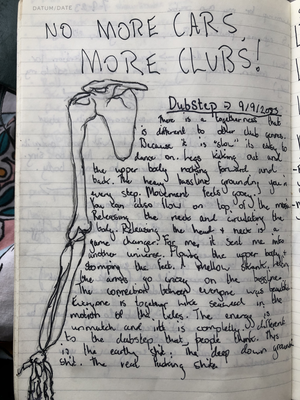 DATUM/DATE
NO MORE CARS,
MORE CLUBS!
Dubstep => 9/9/2023
There is a togetherness that
is different to other club genres.
Because it is "slow" its easy to
dance on. Legs kicking out and
the upper body moving forward and
back. The heavy bassline grounding you in
every step. Movement feels groovy.
You can also flow on top of the music.
Releasing the neck and circulating the
body. Releasing the head + neck is a
game changer. For me, it sent me into
another universe. Flowing the upper body +
stomping the feet. A mellow skank, letting
the arms go crazy on the bassline.
The connection between everyone was beautiful
Everyone is together like seaweed in the
motion of the tides. The energy is
unmatch and its completly different
to the dubstep that people think. This
is the earthy shit. The deep down ground
shit. The real fucking shit